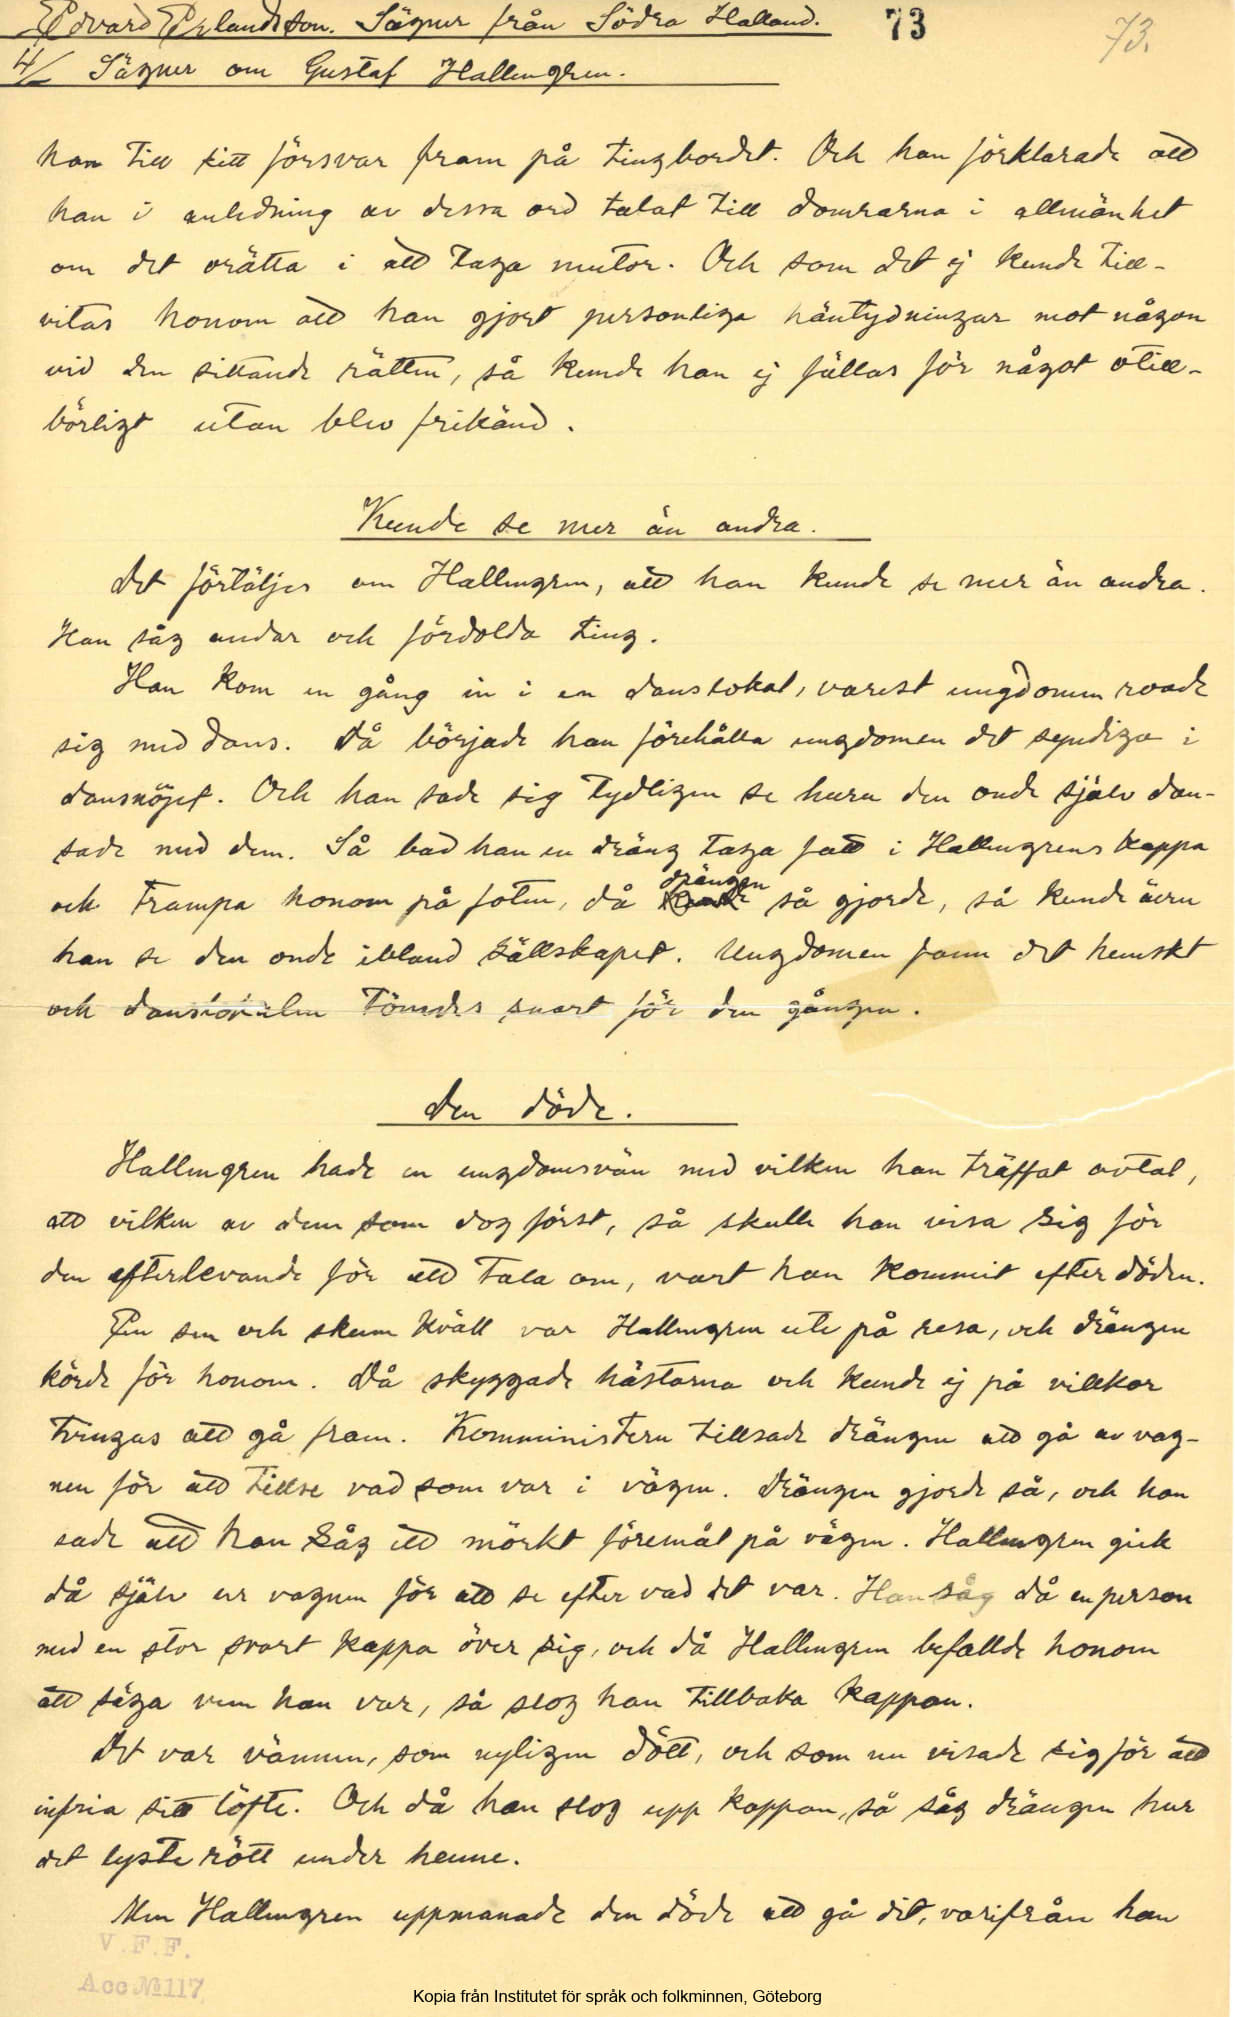 Edvard Erlandsson. Sägner från Södra Halland. 73 73.
4/ Sägner om Gustaf Hallengren.
han till sitt försvar fram på tingbordet. Och han förklarade att
han i anledning av dessa ord talat till domrarna i allmänhet
om det orätta i att taga mutor. Och som det ej kunde till-
vitas honom att han gjort personliga häntydningar mot någon
vid den sittande rätten, så kunde han ej fällas för något otill-
börligt utan blev frikänd.
Kunde se mer än andra.
Det förtäljes om Hallengren, att han kunde se mer än andra.
Han såg andar och fördolda ting.
Han kom en gång in i en danslokal, varest ungdomen roade
sig med dans. Då började han förehålla ungdomen det syndiga i
dansnöjet. Och han sade sig tydligen se huru den onde själv dan-
sade med dem. Så bad han en dräng taga fatt i Hallengrens kappa
och trampa honom på foten, då drängen så gjorde, så kunde även
han se den onde ibland sällskapet. Ungdomen fann det hemskt
och danslokalen tömdes snart för den gången.
Den döde.
Hallengren hade en ungdomsvän med vilken han träffat avtal,
att vilken av dem som dog först, så skulle han visa sig för
den efterlevande för att tala om, vart han kommit efter döden.
En sen och skum kväll var Hallengren ute på resa, och drängen
körde för honom. Då skyggade hästarna och kunde ej på villkor
tvingas att gå fram. Komministern tillsade drängen att gå av vag-
nen för att tillse vad som var i vägen. Drängen gjorde så, och han
sade att han såg ett mörkt föremål på vägen. Hallengren gick
då själv ur vagnen för att se efter vad det var. Han såg då en person
med en stor svart kappa över sig, och då Hallengren befallde honom
att säga vem han var, så slog han tillbaka kappan.
Det var vännen, som nyligen dött, och som nu visade sig för att
infria sitt löfte. Och då han slog upp kappan, så såg drängen hur
det lyste rött under henne.
Men Hallengren uppmanade den döde att gå dit, varifrån han
V.F.F.
Acc №117
Kopia från Institutet för språk och folkminnen, Göteborg